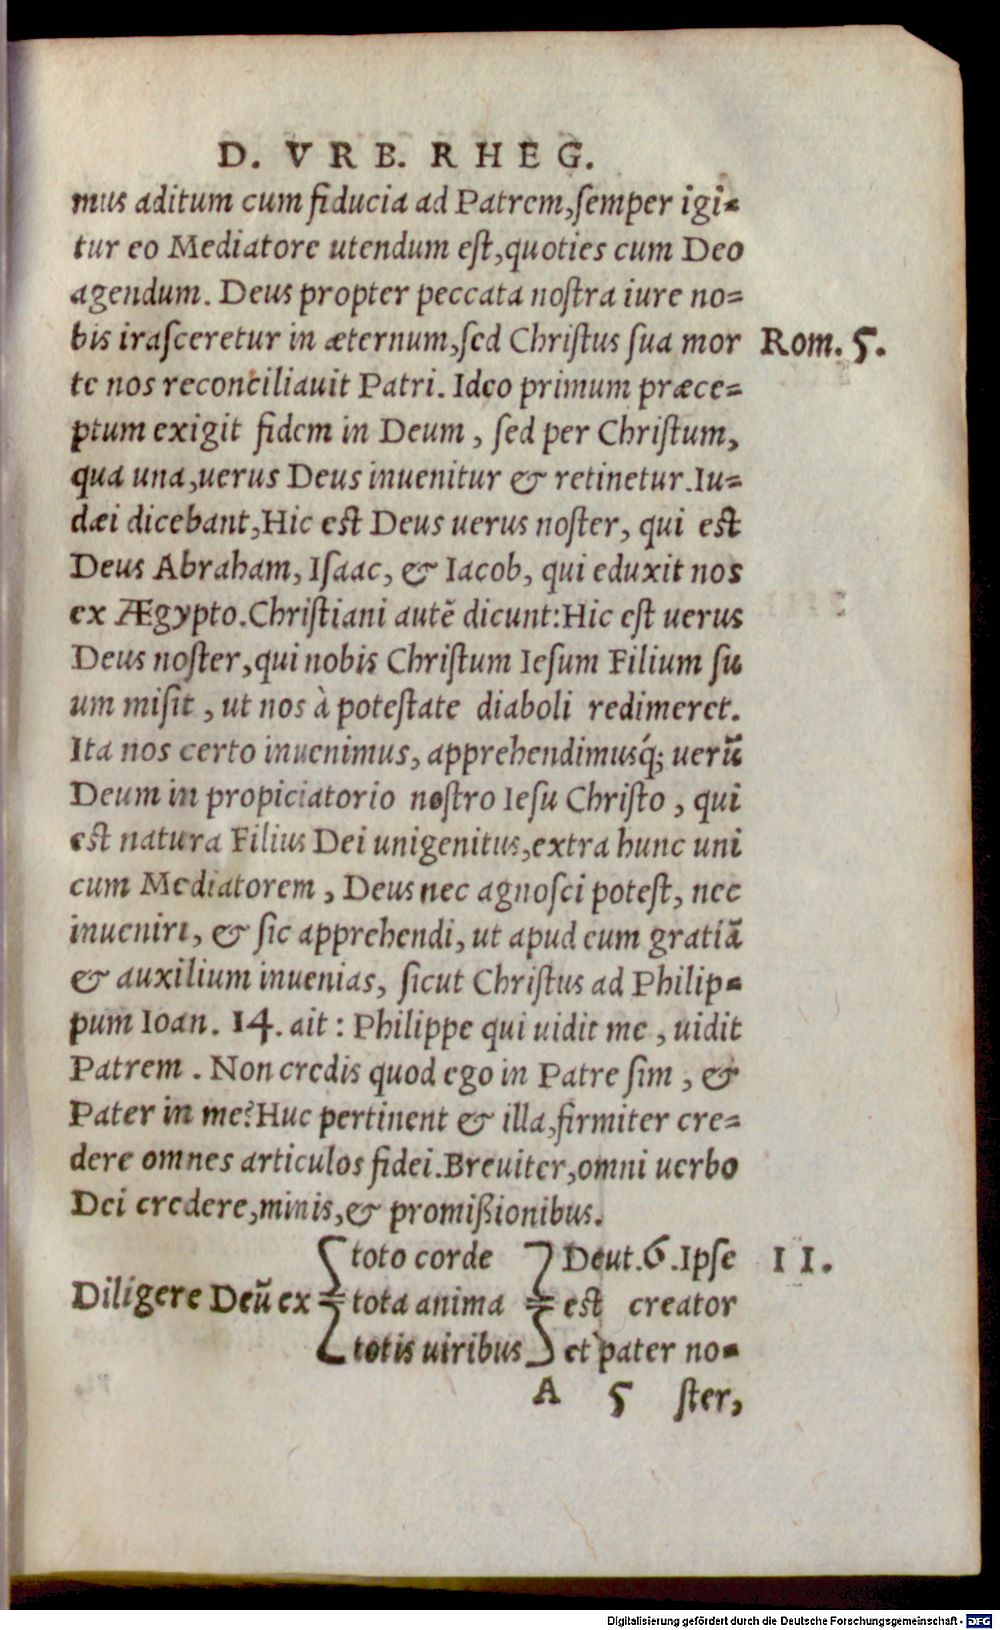 D. VRB. RHEG.
mus aditum cum fiducia ad Patrem,ſemper igi-
tur eo Mediatore utendum eſt,quoties cum Deo
agendum. Deus propter peccata noſtra iure no=
bis iraſceretur in æternum,ſed Chriſtus ſua mor Rom. 5.
te nos reconciliauit Patri. Ideo primum præce=
ptum exigit fidem in Deum, ſed per Chriſtum,
qua una,uerus Deus inuenitur & retinetur.Iu=
dæi dicebant,Hic eſt Deus uerus noſter, qui eſt
Deus Abraham, Iſaac, & Iacob, qui eduxit nos
ex Ægypto.Chriſtiani autẽ dicunt:Hic eſt uerus
Deus noſter,qui nobis Chriſtum Ieſum Filium ſu
um miſit, ut nos à poteſtate diaboli redimeret.
Ita nos certo inuenimus, apprehendimusq́; uerũ
Deum in propiciatorio noſtro Ieſu Chriſto, qui
eſt natura Filius Dei unigenitus,extra hunc uni
cum Mediatorem, Deus nec agnoſci poteſt, nec
inueniri, & ſic apprehendi, ut apud eum gratiã
& auxilium inuenias, ſicut Chriſtus ad Philip-
pum Ioan. 14. ait: Philippe qui uidit me, uidit
Patrem. Non credis quod ego in Patre ſim, &
Pater in me?Huc pertinent & illa,firmiter cre=
dere omnes articulos fidei.Breuiter,omni uerbo
Dei credere,minis,& promißionibus.
toto corde Deut.6.Ipſe II.
Diligere Deũ ex tota anima eſt creator
totis uiribus et pater no-
A 5 ſter,
Digitalisierung gefördert durch die Deutsche Forschungsgemeinschaft - DFG